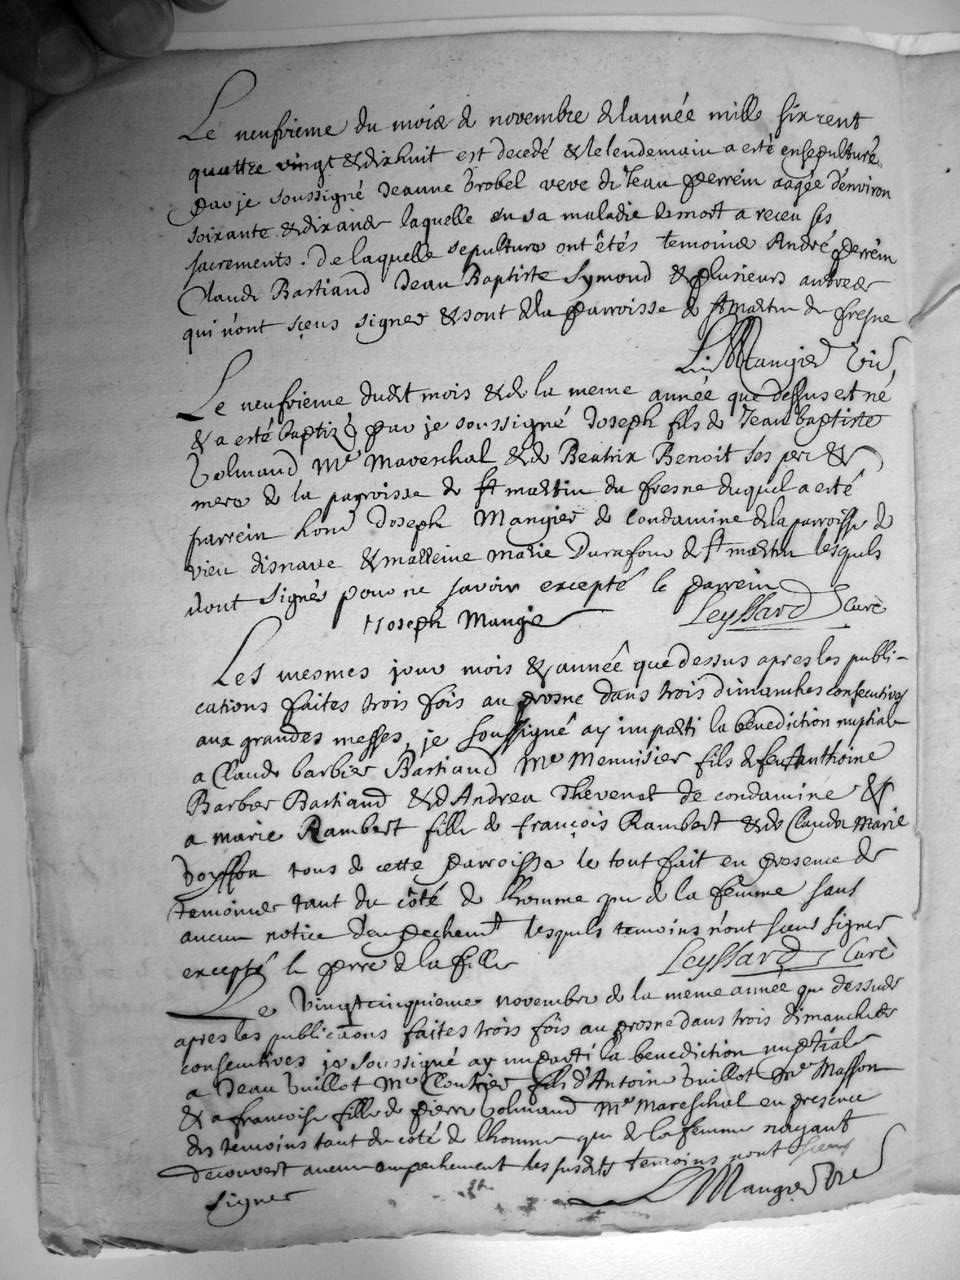 Le neufvieme du mois de novembre de lannée mille six cent
quattre vingt & dixhuit est decedé & le lendemain a esté ensepulturé
par je soussigné Jeanne brobel veve de Jean perrein aagée d'environ
soixante & dix ands laquelle en sa maladie de mort a receu ses
sacrements. De laquelle sepulture ont êtés temoins André perrein
Claude Bastiand Jean Baptiste Symond & plusieurs autres
qui n'ont sçeus signer & sont de la parroisse de st martin du fresne
Mangier vic
Le neufvieme dudit mois & de la meme année que dessus est né
& a esté baptizé par je soussigné Joseph fils de Jean baptiste
Volmand Me Mareschal & de Beatrix Benoit ses pere &
mere de la parroisse de st martin du fresne duquel a esté
parrein hon Joseph Mangier de Condamine de la parroisse de
vieu disnave & marreine marie Durafour de st martin lesquls
nont signés pour ne savoir excepté le parrein
Joseph Mangie Leyssard Curé
Les mesmes jour mois & année que dessus apres les publi-
cations faites trois fois au prosne dans trois dimanches consecutives
aux grandes messes, je soussigné ay imparti la benediction nuptiale
a Claude barbier Bastiand Me Menuisier fils de feu Anthoine
Barbier Bastiand & d'Andrea Thevenet de condamine &
a marie Rambert fille de françois Rambert & de Claude Marie
boysson tous de cette parroisse le tout fait en presence de
temoins tant du côté de lhomme que de la femme sans
aucun notice d'enpechemt lesquels temoins n'ont sceus signer
excepté le perre de la fille Leyssard Curé
Le vingtcinquieme novembre de la même année que dessus
apres les publications faites trois fois au prosne dans trois dimanches
consecutives je soussigné ay imparti la benediction nuptiale
a Jean Vuillot Me Cloutrier fils d'Antoine Vuillot Me Masson
& a francoise fille de pierre Volmand Me Mareschal en presence
des temoins tant du coté de lhomme que de la femme nayant
decouvert aucun empechement les susdits temoins nont sceus
signer Mangier vic